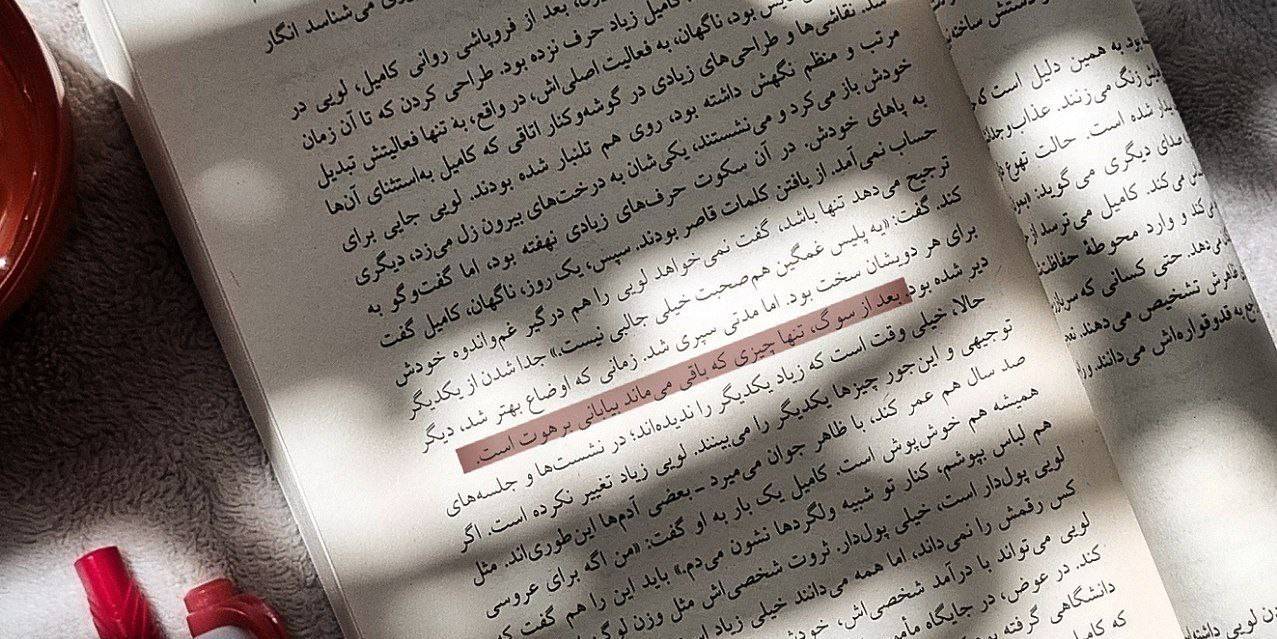 می‌شناسد انگار
بعد از فروپاشی روانی کامیل، لویی در
کامیل زیاد حرف نزده بود. طراحی کردن که تا آن زمان
بود، ناگهان، به فعالیت اصلی‌اش، در واقع، به تنها فعالیتش تبدیل
شد. نقاشی‌ها و طراحی‌های زیادی در گوشه‌وکنار اتاقی که کامیل به‌استثنای آن‌ها
مرتب و منظم نگهش داشته بود، روی هم تلنبار شده بودند. لویی جایی برای
خودش باز می‌کرد و می‌نشستند، یکی‌شان به درخت‌های بیرون زل می‌زد، دیگری
به پاهای خودش. در آن سکوت حرف‌های زیادی نهفته بود، اما گفت‌وگو به
حساب نمی‌آمد. از یافتن کلمات قاصر بودند. سپس، یک روز، ناگهان، کامیل گفت
ترجیح می‌دهد تنها باشد، گفت نمی‌خواهد لویی را هم درگیر غم‌واندوه خودش
کند. گفت: «یه پلیس غمگین هم‌صحبت خیلی جالبی نیست.» جدا شدن از یکدیگر
برای هر دویشان سخت بود. اما مدتی سپری شد. زمانی که اوضاع بهتر شد، دیگر
دیر شده بود. بعد از سوگ، تنها چیزی که باقی می‌ماند بیابانی برهوت است.
حالا، خیلی وقت است که زیاد یکدیگر را ندیده‌اند؛ در نشست‌ها و جلسه‌های
توجیهی و این‌جور چیزها یکدیگر را می‌بینند. لویی زیاد تغییر نکرده است. اگر
صد سال هم عمر کند، با ظاهر جوان می‌میرد ـ بعضی آدم‌ها این‌طوری‌اند. مثل
همیشه هم خوش‌پوش است. کامیل یک بار به او گفت: «من اگه برای عروسی
هم لباس بپوشم، کنار تو شبیه ولگردها نشون می‌دم.» باید این را هم گفت که
لویی پول‌دار است، خیلی پول‌دار. ثروت شخصی‌اش مثل وزن
کس رقمش را نمی‌داند، اما همه می‌دانند خیلی زیاد
لویی می‌تواند با درآمد شخصی‌اش، خودش
کند. در عوض، در جایگاه
دانشگاهی گرفته بود
که
دستش ساخته
بود به همین دلیل است که
زنگ می‌زنند. عذاب
شده است. حالت تهوع
دیگری می‌گوید:
می‌کند. کامیل می‌ترسد از
می‌کند و وارد محوطهٔ
می‌دهد. حتی کسانی که
ظاهرش تشخیص می‌دهند.
به قدوقواره‌اش می‌دانند